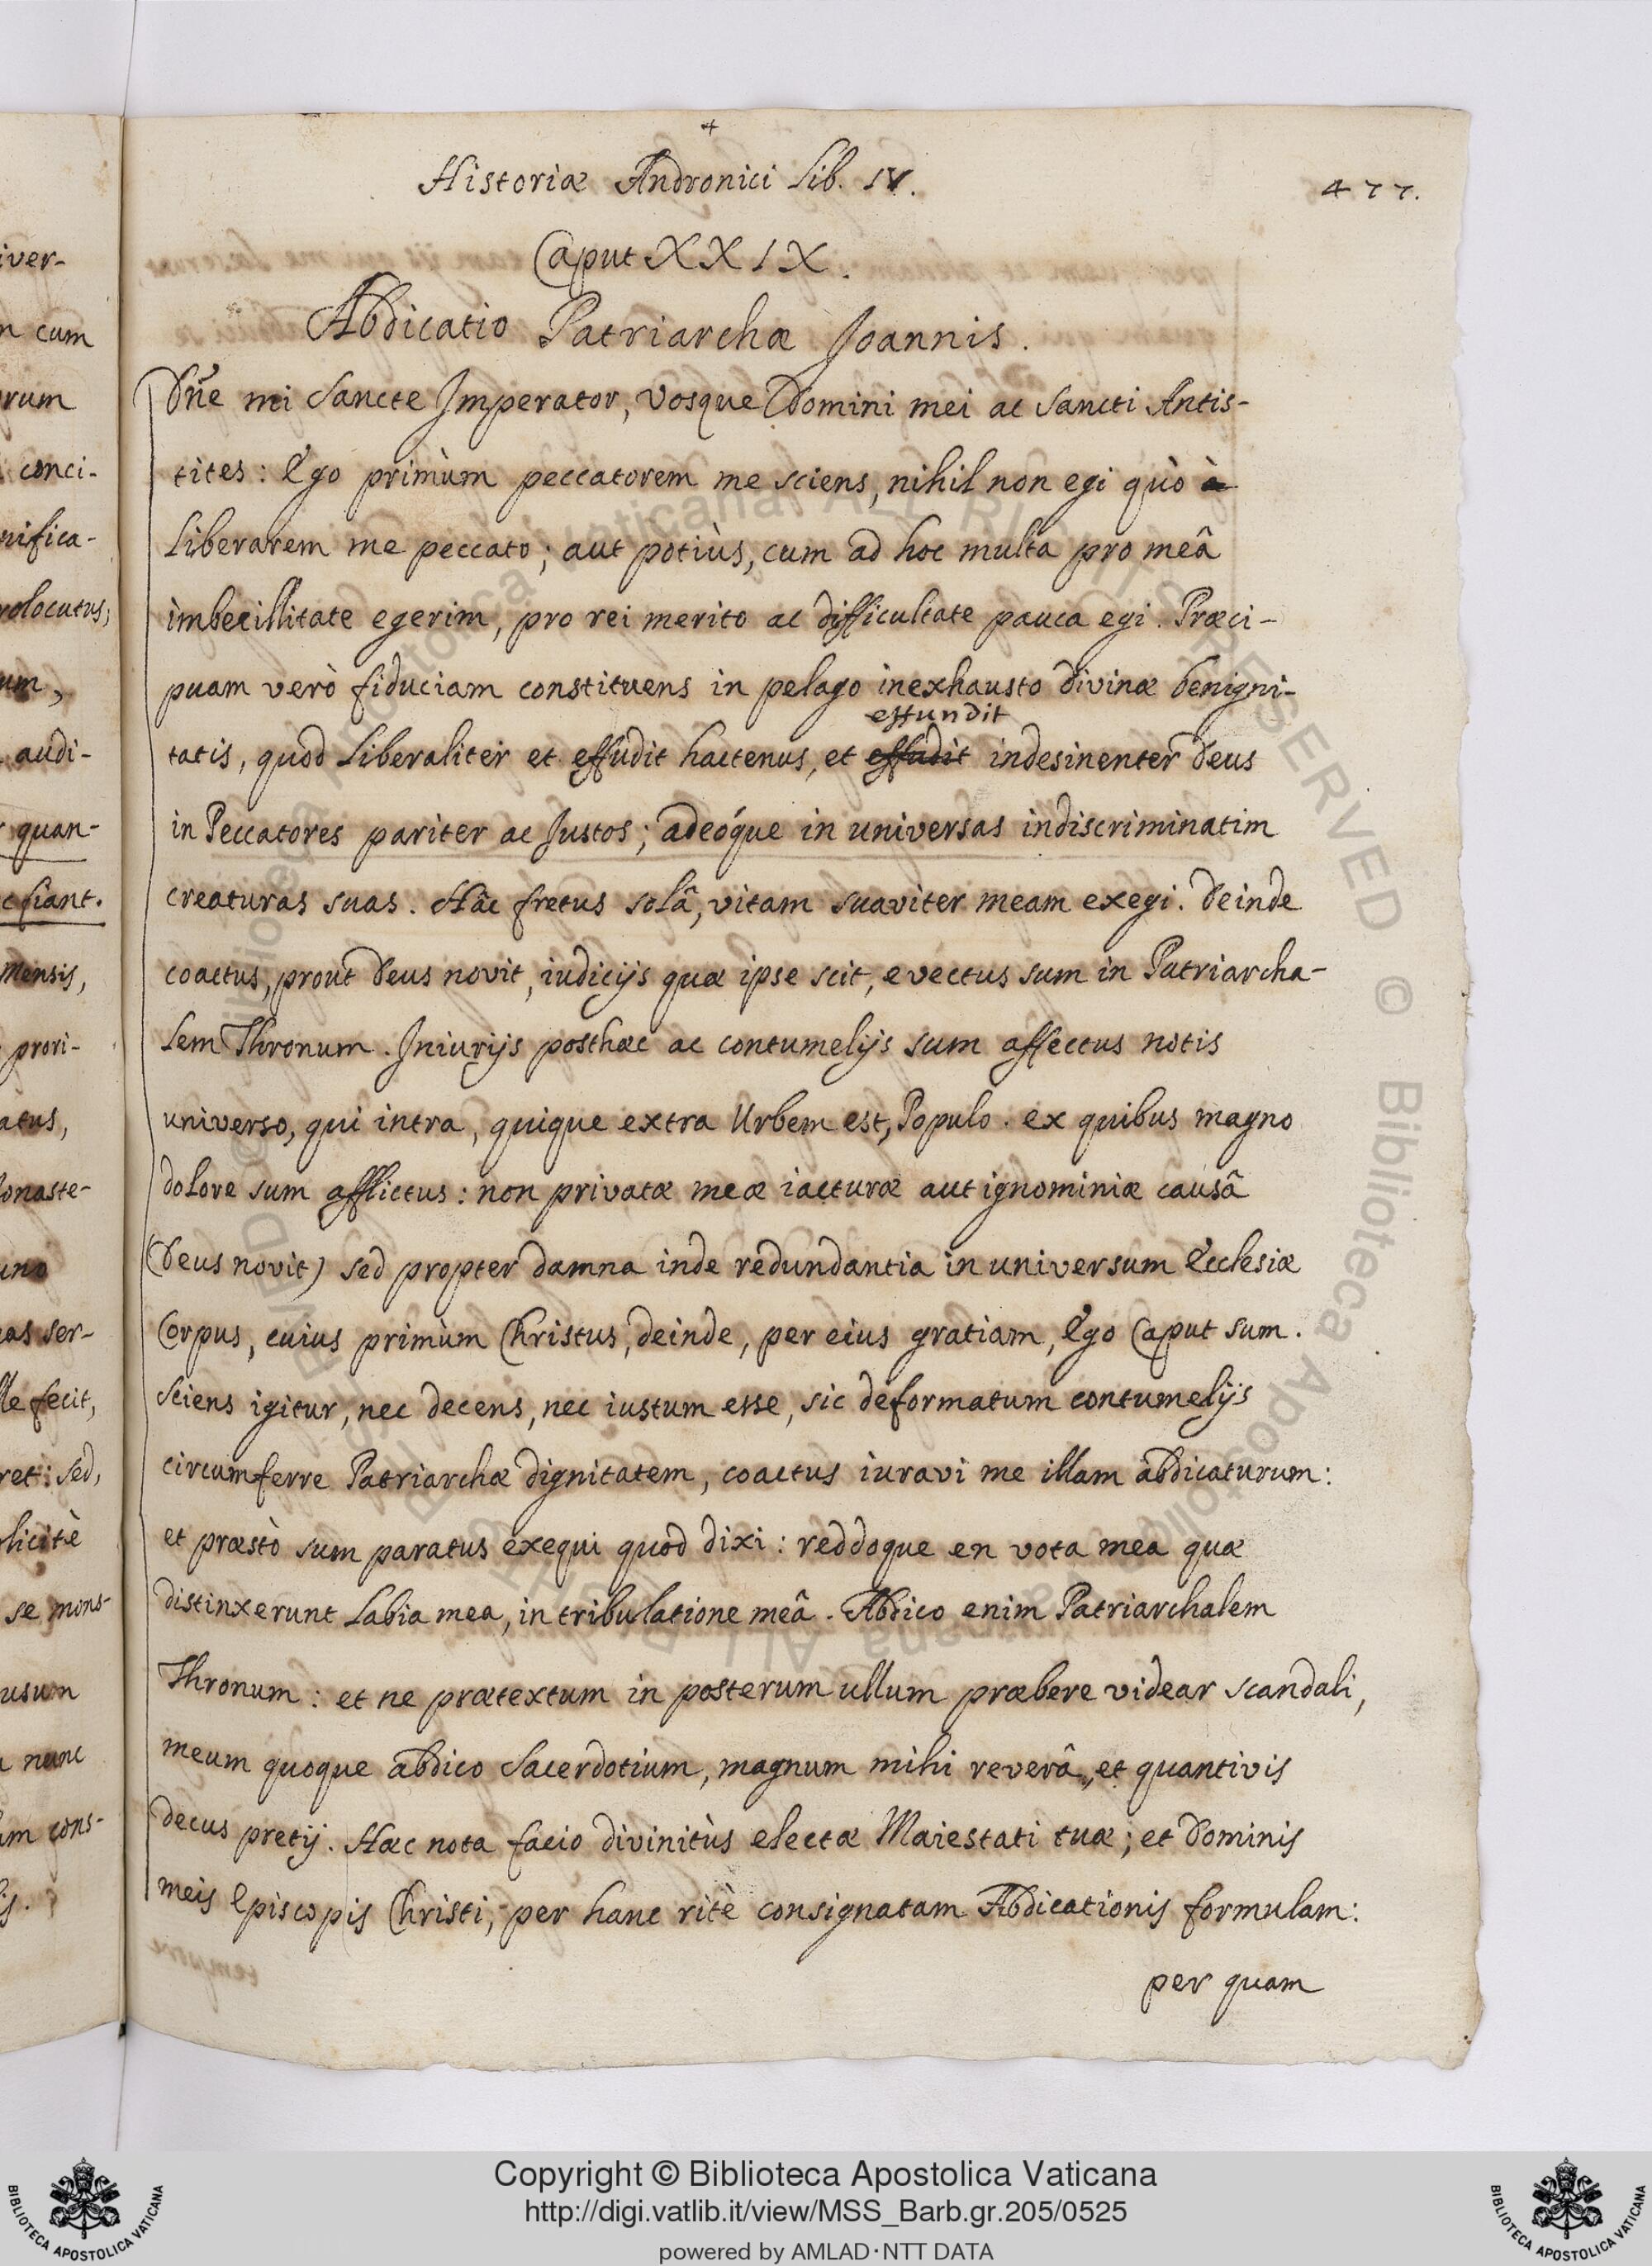 +
Historiæ Andronici Lib. IV.
477.
Caput XXIX.
Abdicatio Patriarchæ Joannis.
Dñe mi Sancte Imperator, vosque Domini mei ac Sancti Antis-
tites: Ego primùm peccatorem me sciens, nihil non egi quò à
liberarem me peccato; aut potiùs, cum ad hoc multa pro meâ
imbecillitate egerim, pro rei merito ac difficultate pauca egi. Præci-
puam verò fiduciam constituens in pelago inexhausto divinæ benigni-
effundit
tatis, quod liberaliter et effudit hactenus, et effudit indesinenter Deus
in Peccatores pariter ac Justos; adeóque in universas indiscriminatim
creaturas suas. Hâc fretus solâ, vitam suaviter meam exegi. Deinde
coactus, prout Deus novit, iudicijs quæ ipse scit, evectus sum in Patriarcha-
lem Thronum. Iniurijs posthæc ac contumelijs sum affectus notis
universo, qui intra, quique extra Urbem est, Populo. ex quibus magno
dolore sum afflictus: non privatæ meæ iacturæ aut ignominiæ causâ
(Deus novit) sed propter damna inde redundantia in universum Ecclesiæ
Corpus, cuius primùm Christus, deinde, per eius gratiam, Ego Caput sum.
Sciens igitur, nec decens, nec iustum esse, sic deformatum contumelijs
circumferre Patriarchæ dignitatem, coactus iuravi me illam abdicaturum:
et præstò sum paratus exequi quod dixi: reddoque en vota mea quæ
distinxerunt labia mea, in tribulatione meâ. Abdico enim Patriarchalem
Thronum: et ne prætextum in posterum ullum præbere videar scandali,
meum quoque abdico Sacerdotium, magnum mihi reverâ, et quantivis
decus pretij. Hæc nota facio divinitùs electæ Maiestati tuæ; et Dominis
meis Episcopis Christi, per hanc ritè consignatam Abdicationis formulam:
per quam
iver-
cum
rum
conci-
nifica-
volocutus;
um,
audi-
quan-
fiant.
mensis,
prori-
atus,
onaste-
uno
as ser-
fecit,
ret: sed,
licitè
se mons-
usum
nunc
um cons-
Copyright © Biblioteca Apostolica Vaticana
http://digi.vatlib.it/view/MSS_Barb.gr.205/0525
powered by AMLAD·NTT DATA
BIBLIOTECA APOSTOLICA VATICANA
BIBLIOTECA APOSTOLICA VATICANA